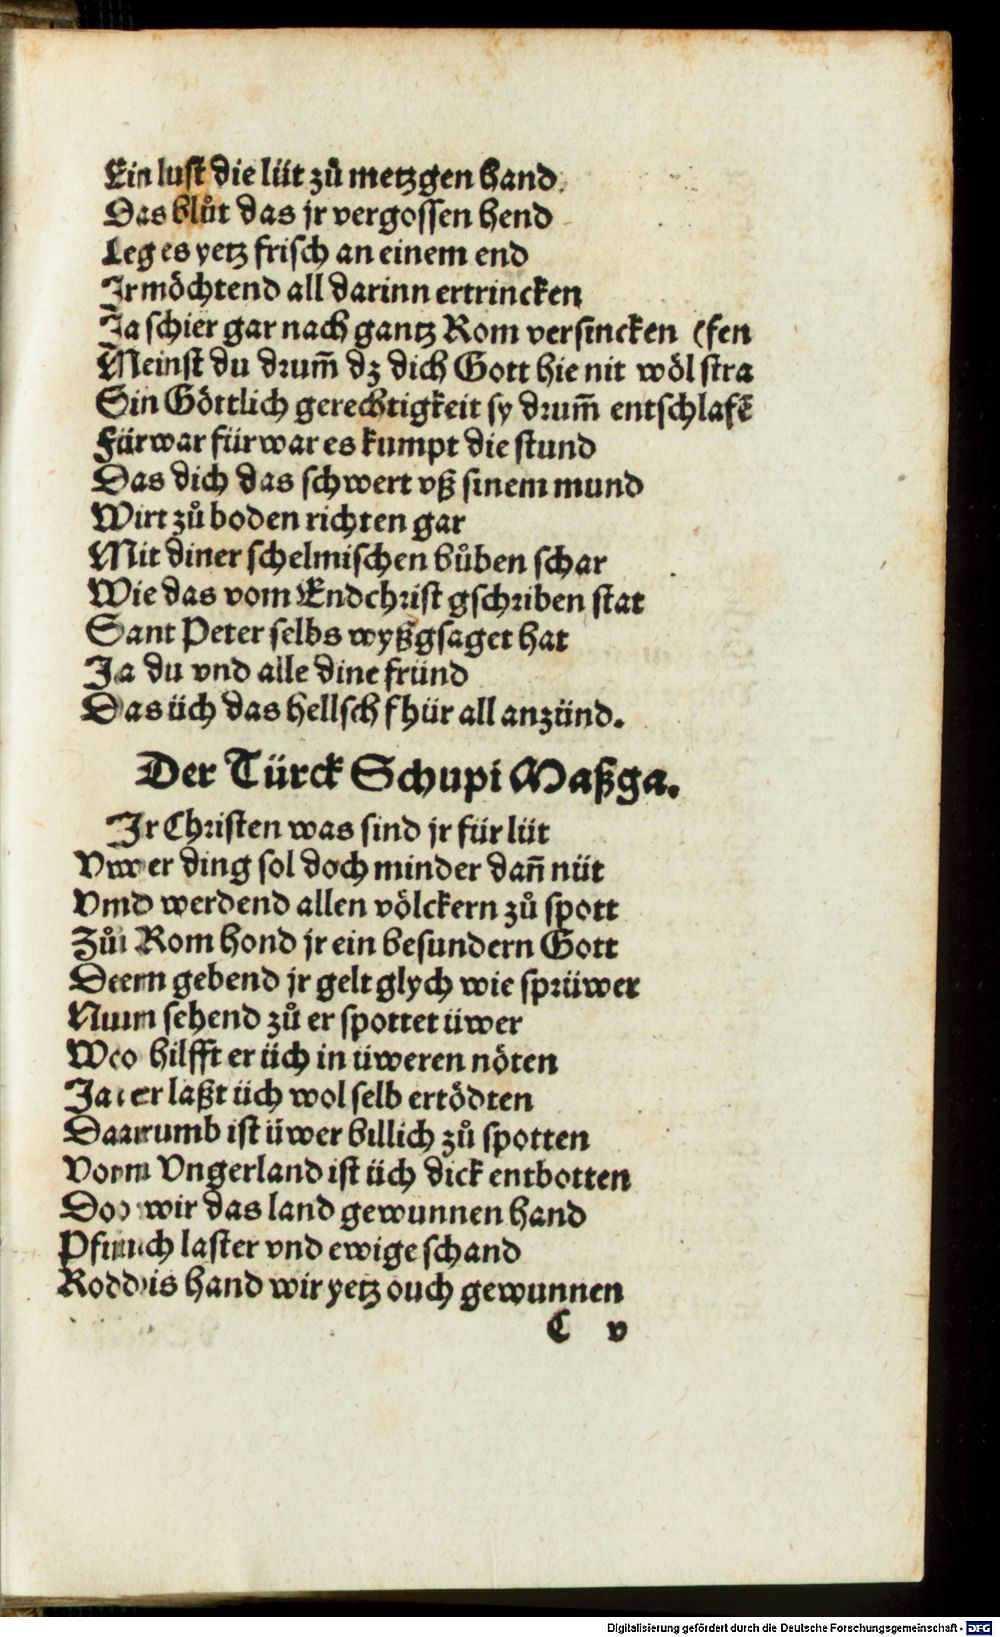 Ein lust die lüt zů metzgen hand
Das blůt das jr vergossen hend
Leg es yetz frisch an einem end
Ir möchtend all darinn ertrincken
Ja schier gar nach gantz Rom versincken (fen
Meinst du drum̄ dz dich Gott hie nit wöl stra
Sin Göttlich gerechtigkeit sy drum̄ entschlafẽ
Fürwar fürwar es kumpt die stund
Das dich das schwert vß sinem mund
Wirt zů boden richten gar
Mit diner schelmischen bůben schar
Wie das vom Endchrist gschriben stat
Sant Peter selbs wyßgsaget hat
Ja du vnd alle dine fründ
Das üch das hellsch fhür all anzünd.
Der Türck Schupi Maßga.
Jr Christen was sind jr für lüt
Vwer ding sol doch minder dañ nüt
Vnd werdend allen völckern zů spott
Zů Rom hond jr ein besundern Gott
Dem gebend jr gelt glych wie sprüwer
Nun sehend zů er spottet üwer
Wo hilfft er üch in üweren nöten
Ja er laßt üch wol selb ertödten
Darumb ist üwer billich zů spotten
Vom Vngerland ist üch dick entbotten
Do wir das land gewunnen hand
Pfuch laster vnd ewige schand
Rodis hand wir yetz ouch gewunnen
C v
Digitalisierung gefördert durch die Deutsche Forschungsgemeinschaft - DFG